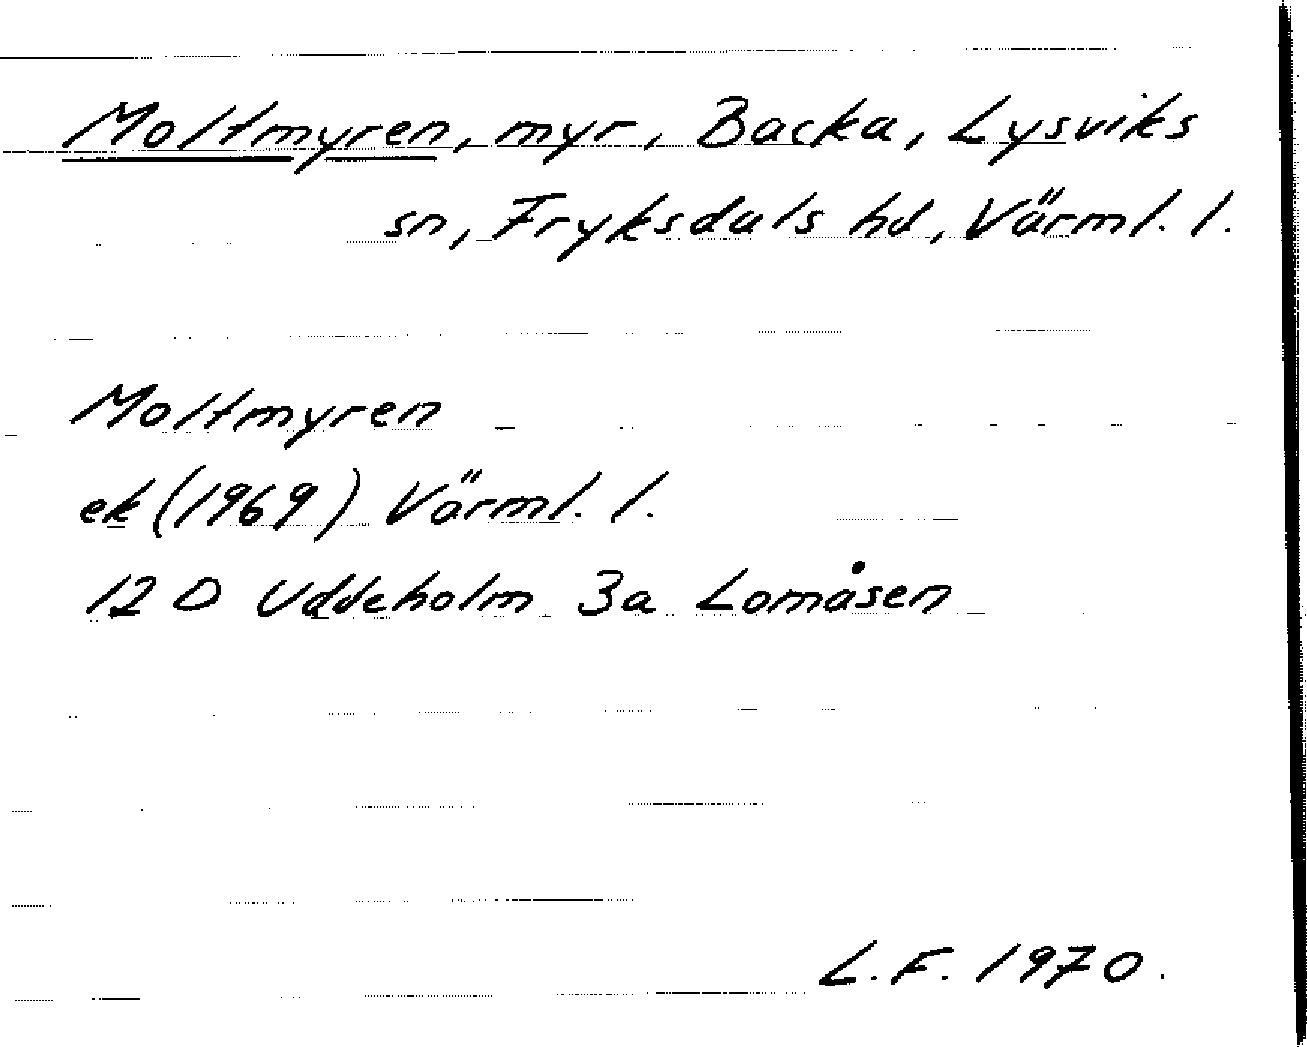 Moltmyren, myr, Backa, Lysviks
sn, Fryksdals hd, Värml. l.
Moltmyren
ek (1969) Värml. l.
12 D Uddeholm 3a Lomåsen
L.F. 1970.